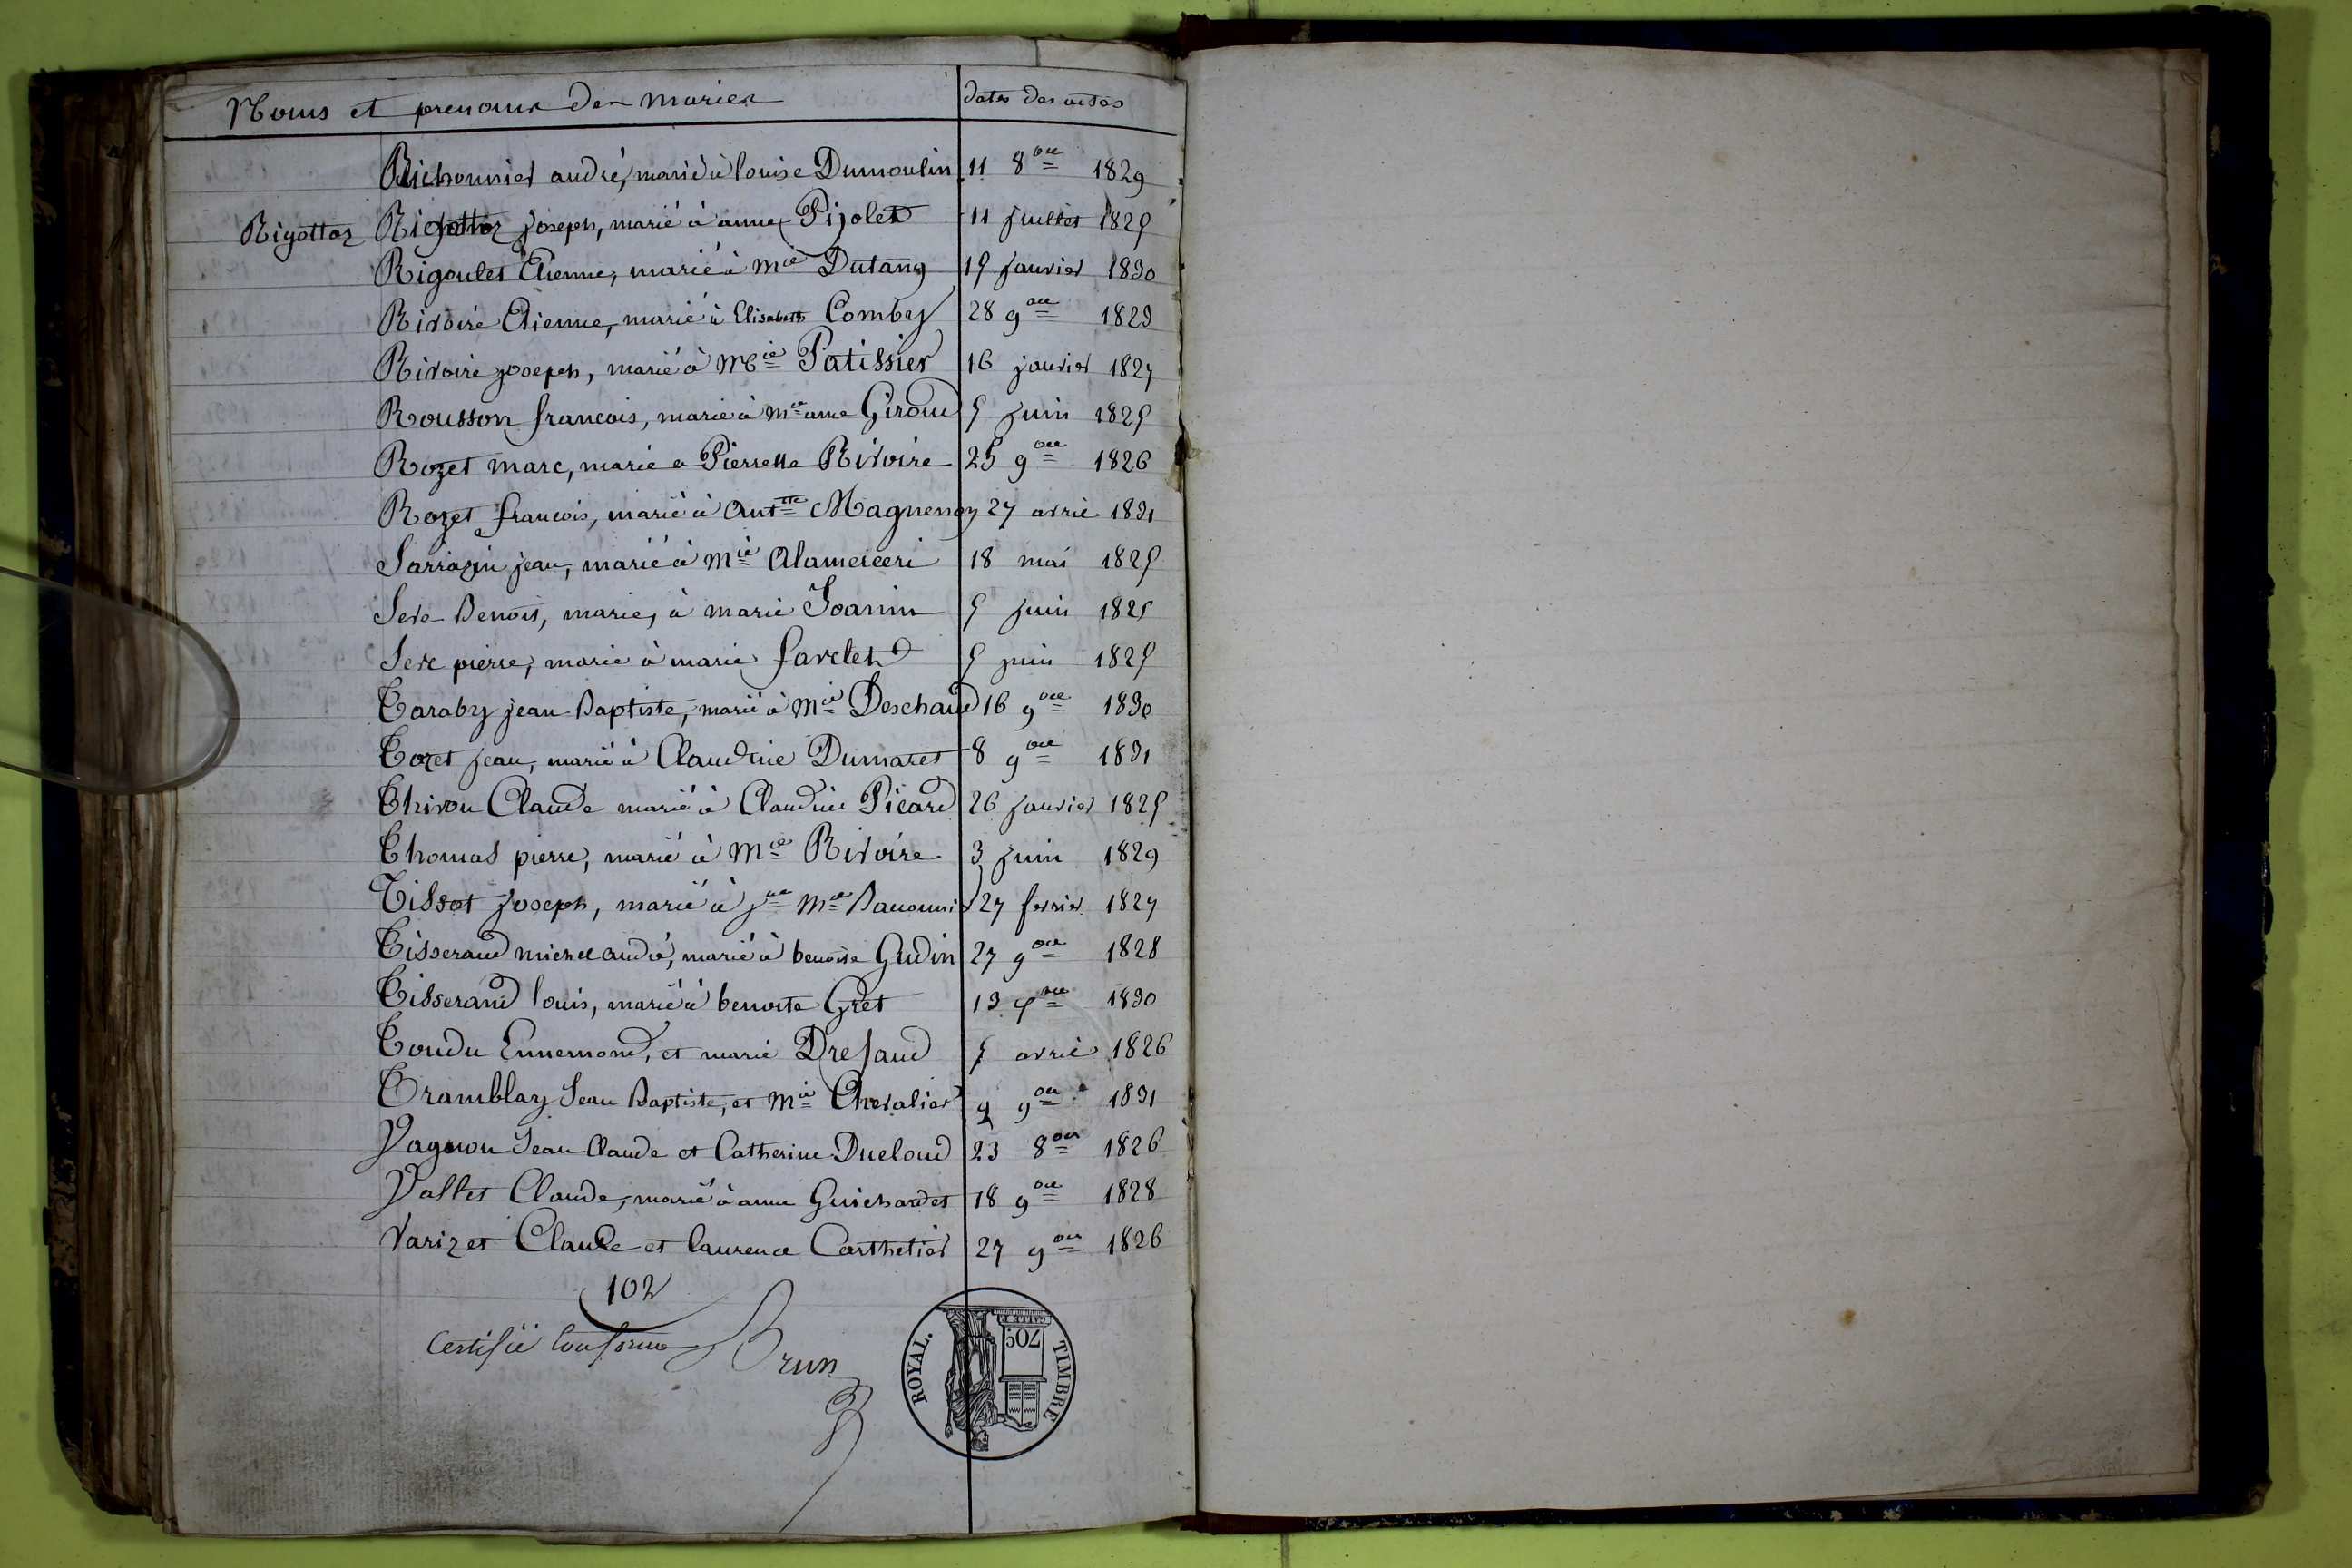 Noms et prenoms des mariés dates des actes
Richonnier andré, marié à louise Dumoulin 11 8bre 1829
Rigottaz Rigottaz joseph, marié à anne Pijolet 11 juillet 1825
Rigoulet Etienne, marié à Mie Dutang 15 janvier 1830
Rivoire Etienne, marié à Elisabeth Comby 28 9bre 1829
Rivoire joseph, marié à Mie Patissier 16 janvier 1827
Rousson francois, marié à mie anne Giroud 5 juin 1825
Rozet marc, marié a Pierrette Rivoire 25 9bre 1826
Rozet francois, marié à Antte Magnenoz 27 avril 1831
Sarrazin jean, marié à Mie Alamerceri 18 mai 1825
Seve Benoit, marié, à marie Joanin 5 juin 1825
Seve pierre, marié à marie farelet 5 juin 1825
Taraby jean Baptiste, marié à Mie Deschaud 16 9bre 1830
Tozet jean, marié à Claudine Dumaret 8 9bre 1831
Thivon Claude marié à Claudine Picard 26 janvier 1825
Thomas pierre, marié à Mie Rivoire 3 juin 1829
Tissot joseph, marié à jne Mie Bauonnier 27 fevrier 1827
Tisserand michel andré, marié à benoite Gudin 27 9bre 1828
Tisserand louis, marié à benoite Gret 13 9bre 1830
Toudu Ennemond, et marie Drefaud 5 avril 1826
Tramblay Jean Baptiste, et Mie Chevalier 9 9bre 1831
Vagnon Jean Claude et Catherine Ducloud 23 8bre 1826
Vallet Claude, marié à anne Guichardet 18 9bre 1828
Varizet Claude et laurence Carthelier 27 9bre 1826
102
Certifié Conforme Brun
TIMBRE ROYAL.
70c